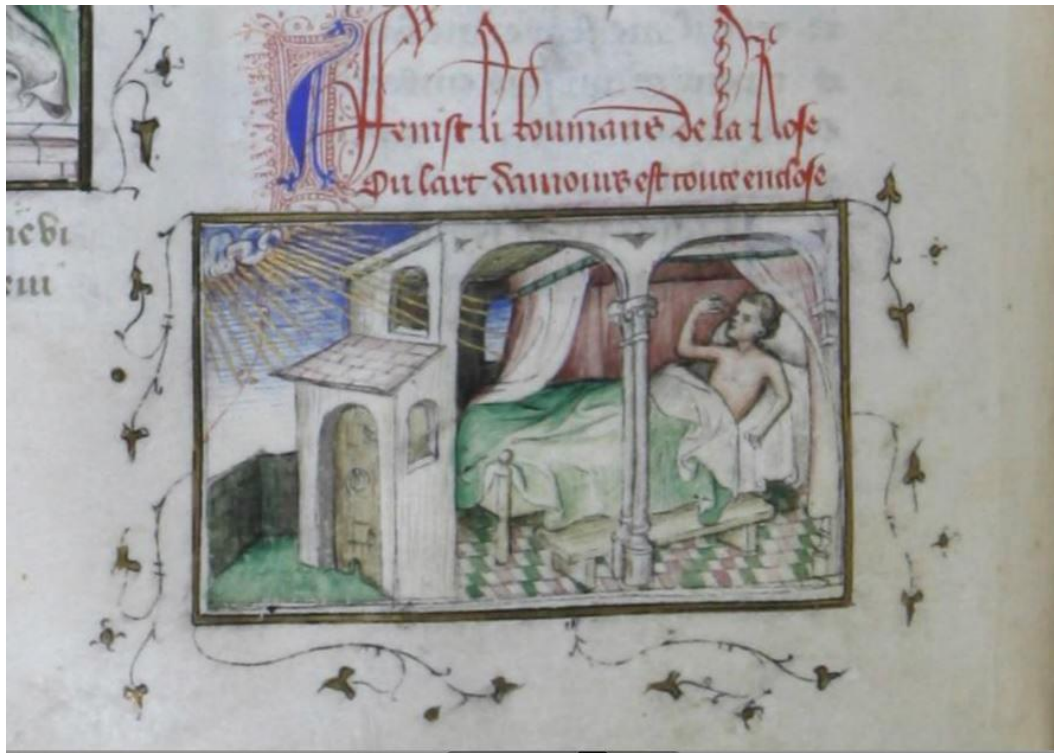 fenist li roumans de la Rose
Ou lart damours est toute enclose